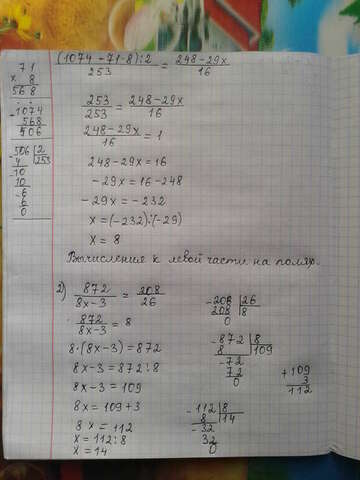 (1074 - 71·8):2 / 253 = 248-29x / 16
71
× 8
568
253 / 253 = 248-29x / 16
-1074
568
506
248-29x / 16 = 1
506 | 2
4 | 253
-10
10
-6
6
0
248-29x=16
-29x=16-248
-29x=-232
x=(-232):(-29)
x=8
Вычисление к левой части на полях.
2) 872 / 8x-3 = 208 / 26
-208 | 26
208 | 8
0
872 / 8x-3 = 8
-872 | 8
8 | 109
-72
72
0
8·(8x-3)=872
8x-3=872:8
+109
3
112
8x-3=109
8x=109+3
-112 | 8
8 | 14
-32
32
0
8x=112
x=112:8
x=14